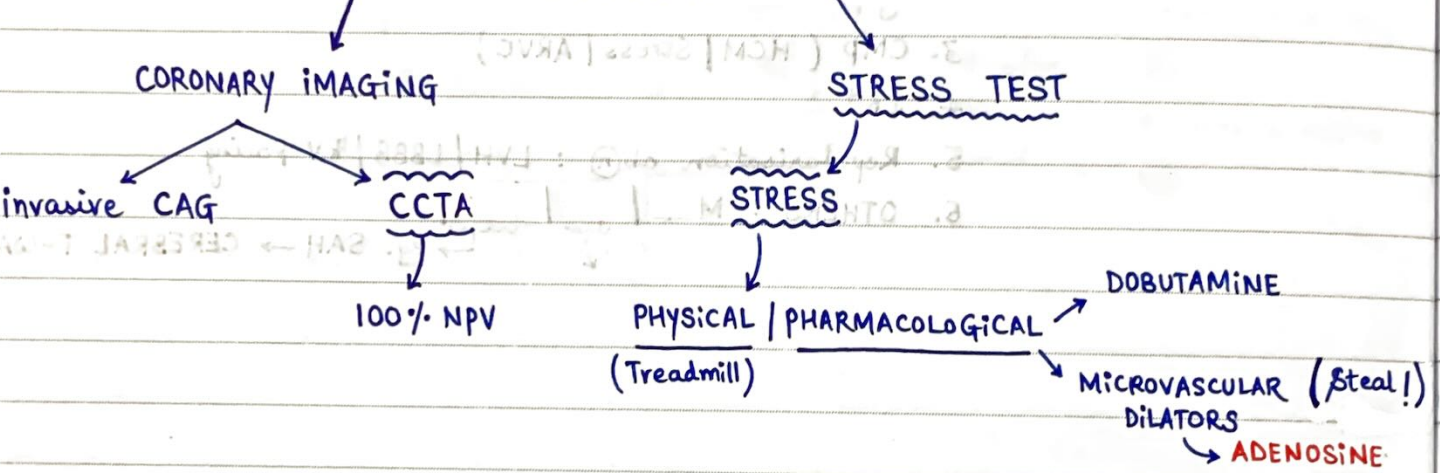 CORONARY IMAGING
STRESS TEST
invasive CAG
CCTA
STRESS
100% NPV
PHYSICAL / PHARMACOLOGICAL
(Treadmill)
DOBUTAMINE
MICROVASCULAR (Steal!)
DILATORS
ADENOSINE